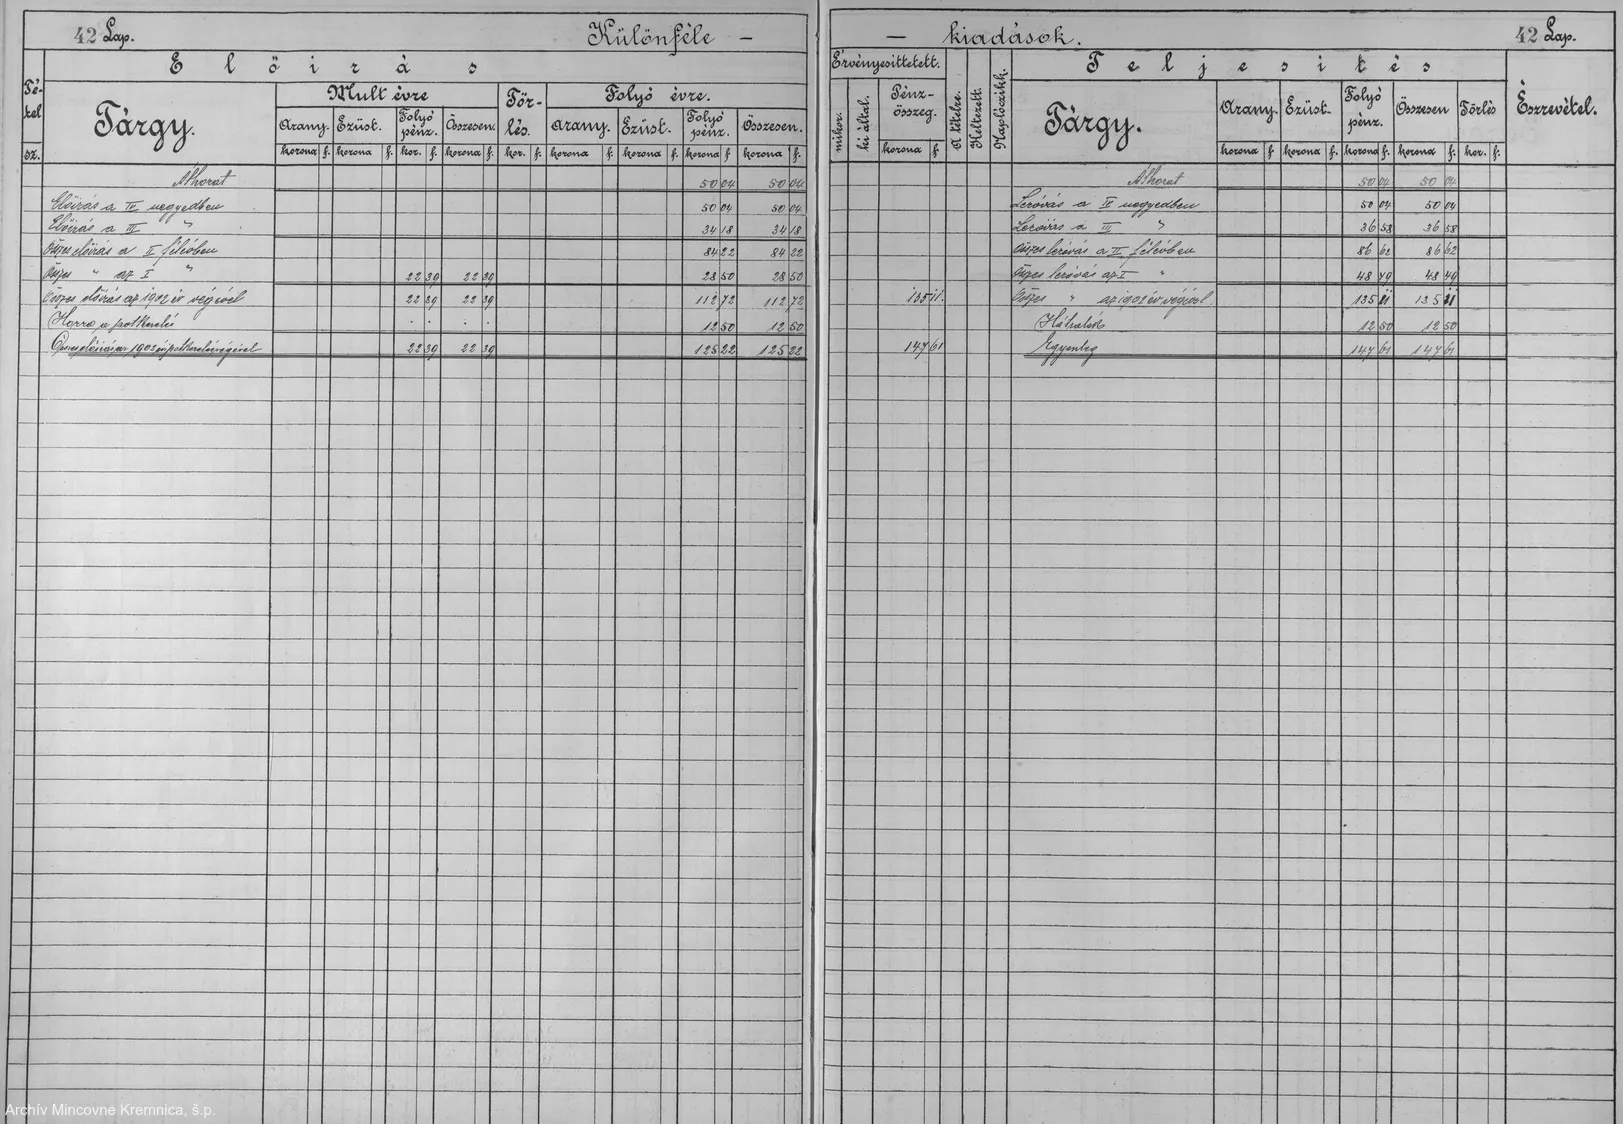 42 Lap.
Különféle –
Előirás
Tétel sz.
Tárgy.
Mult évre
Arany. Ezüst. Folyó pénz. Összesen.
Törlés.
Folyó évre.
Arany. Ezüst. Folyó pénz. Összesen.
korona f. korona f. kor. f. korona f. kor. f. korona f. korona f. korona f. korona f.
Áthozat 50 04 50 04
Előirás a IV negyedben 50 04 50 04
Előirás a III " 34 18 34 18
Összes előirás a II félévben 84 22 84 22
Összes " az I " 22 39 22 39 28 50 28 50
Összes előirás az 1902 év végével 22 39 22 39 112 72 112 72
12 50 12 50
22 39 22 39 125 22 125 22
– kiadások.
42 Lap.
Érvényesittetett.
mikor. ki által. Pénzösszeg.
korona f.
A tételre. Keltezett. Naplóczikk.
Teljesités
Tárgy.
Arany. Ezüst. Folyó pénz. Összesen Törlés
korona f. korona f. korona f. korona f. kor. f.
Észrevétel.
Áthozat 50 04 50 04
Lerovás a IV negyedben 50 04 50 04
Lerovás a III " 36 58 36 58
Összes lerovás a II félévben 86 62 86 62
Összes lerovás az I " 48 49 48 49
135 11 Összes " az 1902 év végével 135 11 135 11
Hátralék 12 50 12 50
147 61 Egyenleg 147 61 147 61
Archív Mincovne Kremnica, š.p.